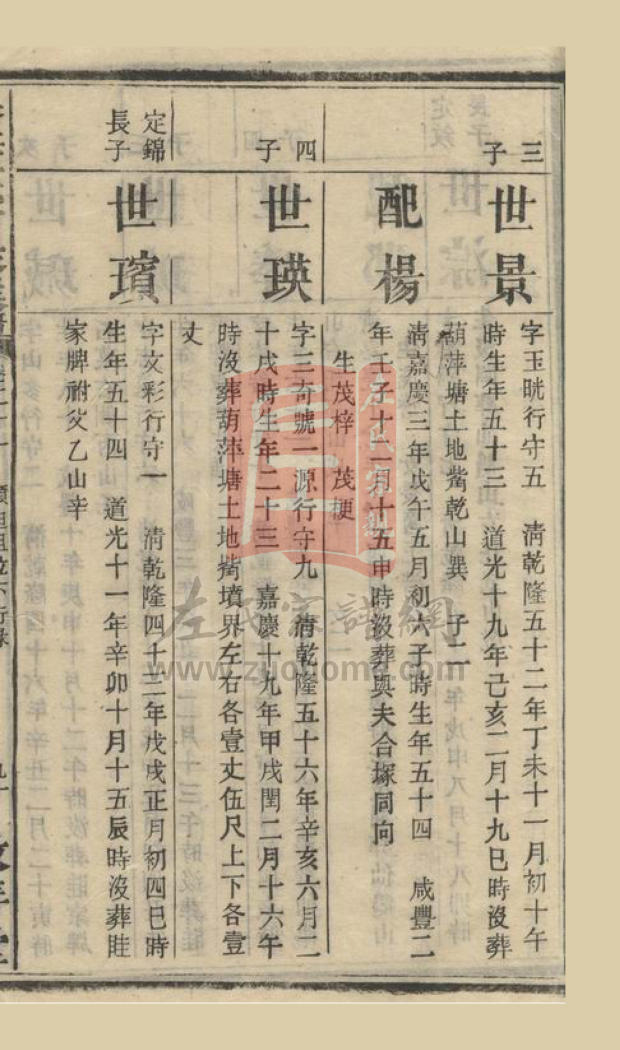 三子
世景
字玉晄行守五 清乾隆五十二年丁未十一月初十午
時生年五十三 道光十九年己亥二月十九巳時沒葬
葫萍塘土地觜乾山巽 子二
配楊
清嘉慶三年戊午五月初六子時生年五十四 咸豐二
年壬子十二月十五申時沒葬與夫合塚同向
生茂梓 茂梗
四子
世瑛
字三奇號一源行守九 清乾隆五十六年辛亥六月二
十戌時生年二十三 嘉慶十九年甲戌閏二月十六午
時沒葬葫萍塘土地觜墳界左右各壹丈伍尺上下各壹
丈
定錦長子
世璸
字文彩行守一 清乾隆四十三年戊戌正月初四巳時
生年五十四 道光十一年辛卯十月十五辰時沒葬眭
家牌祔父乙山辛
左氏家譜網
www.zuohome.com